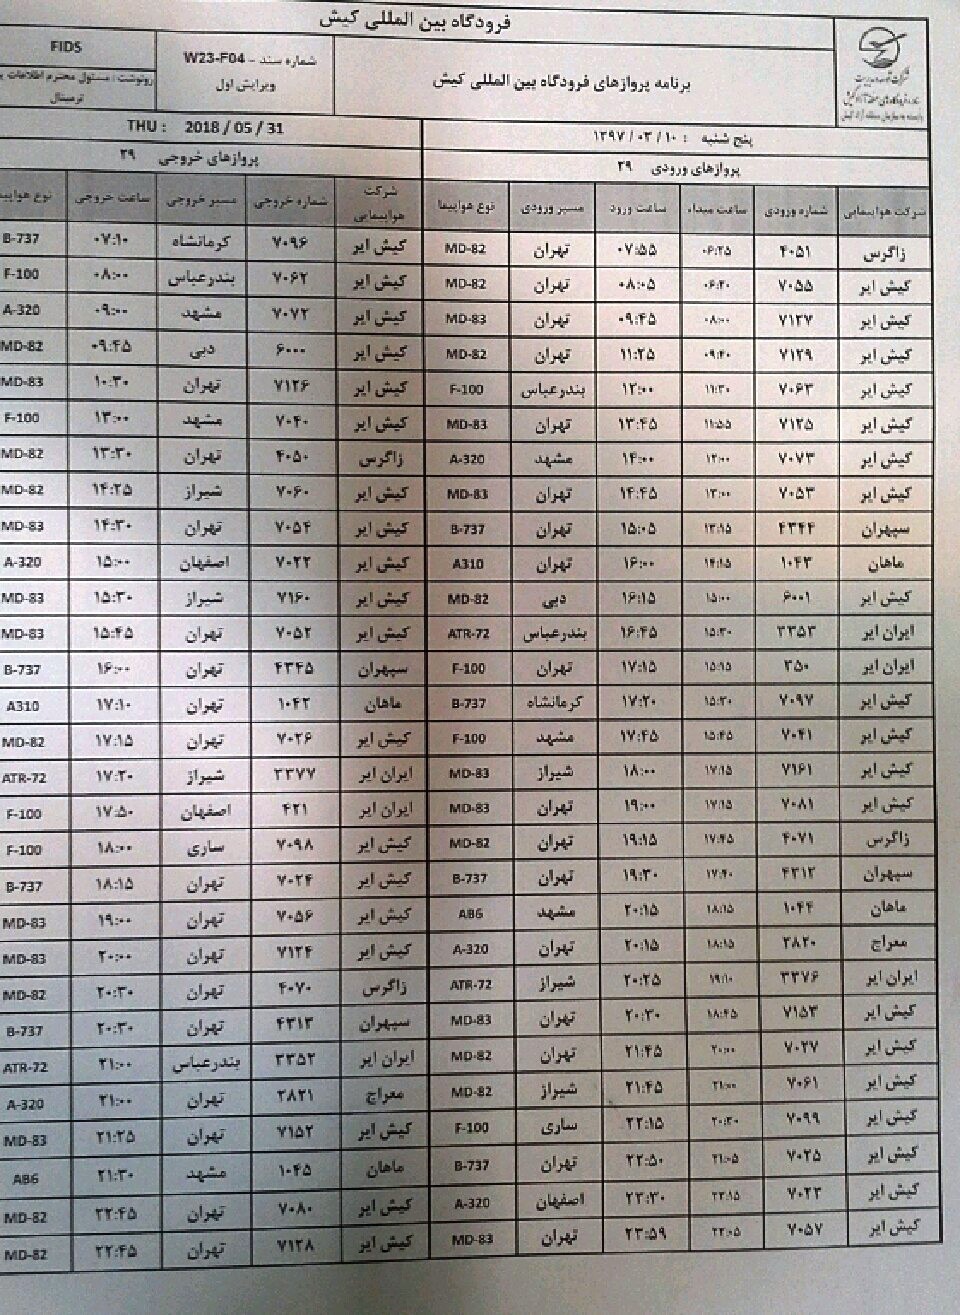 فرودگاه بین المللی کیش
برنامه پروازهای فرودگاه بین المللی کیش
شماره سند – W23-F04
ویرایش اول
FIDS
رونوشت : مسئول محترم اطلاعات
ترمینال
پنج شنبه : ۱۳۹۷/۰۳/۱۰
THU : 2018 / 05 / 31
پروازهای ورودی ۲۹
پروازهای خروجی ۲۹
شرکت هواپیمایی شماره ورودی ساعت مبداء ساعت ورود مسیر ورودی نوع هواپیما شرکت هواپیمایی شماره خروجی مسیر خروجی ساعت خروجی نوع هواپیما
زاگرس ۴۰۵۱ ۰۶:۲۵ ۰۷:۵۵ تهران MD-82 کیش ایر ۷۰۹۶ کرمانشاه ۰۷:۱۰ B-737
کیش ایر ۷۰۵۵ ۰۶:۲۰ ۰۸:۰۵ تهران MD-82 کیش ایر ۷۰۶۲ بندرعباس ۰۸:۰۰ F-100
کیش ایر ۷۱۲۷ ۰۸:۰۰ ۰۹:۴۵ تهران MD-83 کیش ایر ۷۰۷۲ مشهد ۰۹:۰۰ A-320
کیش ایر ۷۱۲۹ ۰۹:۴۰ ۱۱:۲۵ تهران MD-82 کیش ایر ۶۰۰۰ دبی ۰۹:۴۵ MD-82
کیش ایر ۷۰۶۳ ۱۱:۳۰ ۱۲:۰۰ بندرعباس F-100 کیش ایر ۷۱۲۶ تهران ۱۰:۳۰ MD-83
کیش ایر ۷۱۲۵ ۱۱:۵۵ ۱۳:۴۵ تهران MD-83 کیش ایر ۷۰۴۰ مشهد ۱۳:۰۰ F-100
کیش ایر ۷۰۷۳ ۱۲:۰۰ ۱۴:۰۰ مشهد A-320 زاگرس ۴۰۵۰ تهران ۱۳:۳۰ MD-82
کیش ایر ۷۰۵۳ ۱۳:۰۰ ۱۴:۴۵ تهران MD-83 کیش ایر ۷۰۶۰ شیراز ۱۴:۲۵ MD-82
سپهران ۴۳۴۴ ۱۳:۱۵ ۱۵:۰۵ تهران B-737 کیش ایر ۷۰۵۴ تهران ۱۴:۳۰ MD-83
ماهان ۱۰۴۳ ۱۴:۱۵ ۱۶:۰۰ تهران A310 کیش ایر ۷۰۲۲ اصفهان ۱۵:۰۰ A-320
کیش ایر ۶۰۰۱ ۱۵:۰۰ ۱۶:۱۵ دبی MD-82 کیش ایر ۷۱۶۰ شیراز ۱۵:۳۰ MD-83
ایران ایر ۳۳۵۳ ۱۵:۳۰ ۱۶:۴۵ بندرعباس ATR-72 کیش ایر ۷۰۵۲ تهران ۱۵:۴۵ MD-83
ایران ایر ۳۵۰ ۱۵:۱۵ ۱۷:۱۵ تهران F-100 سپهران ۴۳۴۵ تهران ۱۶:۰۰ B-737
کیش ایر ۷۰۹۷ ۱۵:۳۰ ۱۷:۲۰ کرمانشاه B-737 ماهان ۱۰۴۲ تهران ۱۷:۱۰ A310
کیش ایر ۷۰۴۱ ۱۵:۴۵ ۱۷:۴۵ مشهد F-100 کیش ایر ۷۰۲۶ تهران ۱۷:۱۵ MD-82
کیش ایر ۷۱۶۱ ۱۷:۱۵ ۱۸:۰۰ شیراز MD-83 ایران ایر ۳۳۷۷ شیراز ۱۷:۲۰ ATR-72
کیش ایر ۷۰۸۱ ۱۷:۱۵ ۱۹:۰۰ تهران MD-83 ایران ایر ۴۲۱ اصفهان ۱۷:۵۰ F-100
زاگرس ۴۰۷۱ ۱۷:۴۵ ۱۹:۱۵ تهران MD-82 کیش ایر ۷۰۹۸ ساری ۱۸:۰۰ F-100
سپهران ۴۳۱۲ ۱۷:۴۰ ۱۹:۳۰ تهران B-737 کیش ایر ۷۰۲۴ تهران ۱۸:۱۵ B-737
ماهان ۱۰۴۴ ۱۸:۱۵ ۲۰:۱۵ مشهد AB6 کیش ایر ۷۰۵۶ تهران ۱۹:۰۰ MD-83
معراج ۲۸۲۰ ۱۸:۱۵ ۲۰:۱۵ تهران A-320 کیش ایر ۷۱۲۴ تهران ۲۰:۰۰ MD-83
ایران ایر ۳۳۷۶ ۱۹:۱۰ ۲۰:۲۵ شیراز ATR-72 زاگرس ۴۰۷۰ تهران ۲۰:۳۰ MD-82
کیش ایر ۷۱۵۳ ۱۸:۴۵ ۲۰:۳۰ تهران MD-83 سپهران ۴۳۱۳ تهران ۲۰:۳۰ B-737
کیش ایر ۷۰۲۷ ۲۰:۰۰ ۲۱:۴۵ تهران MD-82 ایران ایر ۳۳۵۲ بندرعباس ۲۱:۰۰ ATR-72
کیش ایر ۷۰۶۱ ۲۱:۰۰ ۲۱:۴۵ شیراز MD-82 معراج ۲۸۲۱ تهران ۲۱:۰۰ A-320
کیش ایر ۷۰۹۹ ۲۰:۳۰ ۲۲:۱۵ ساری F-100 کیش ایر ۷۱۵۲ تهران ۲۱:۲۵ MD-83
کیش ایر ۷۰۲۵ ۲۱:۰۵ ۲۲:۵۰ تهران B-737 ماهان ۱۰۴۵ مشهد ۲۱:۳۰ AB6
کیش ایر ۷۰۲۳ ۲۲:۱۵ ۲۳:۳۰ اصفهان A-320 کیش ایر ۷۰۸۰ تهران ۲۲:۴۵ MD-82
کیش ایر ۷۰۵۷ ۲۲:۰۵ ۲۳:۵۹ تهران MD-83 کیش ایر ۷۱۲۸ تهران ۲۲:۴۵ MD-82